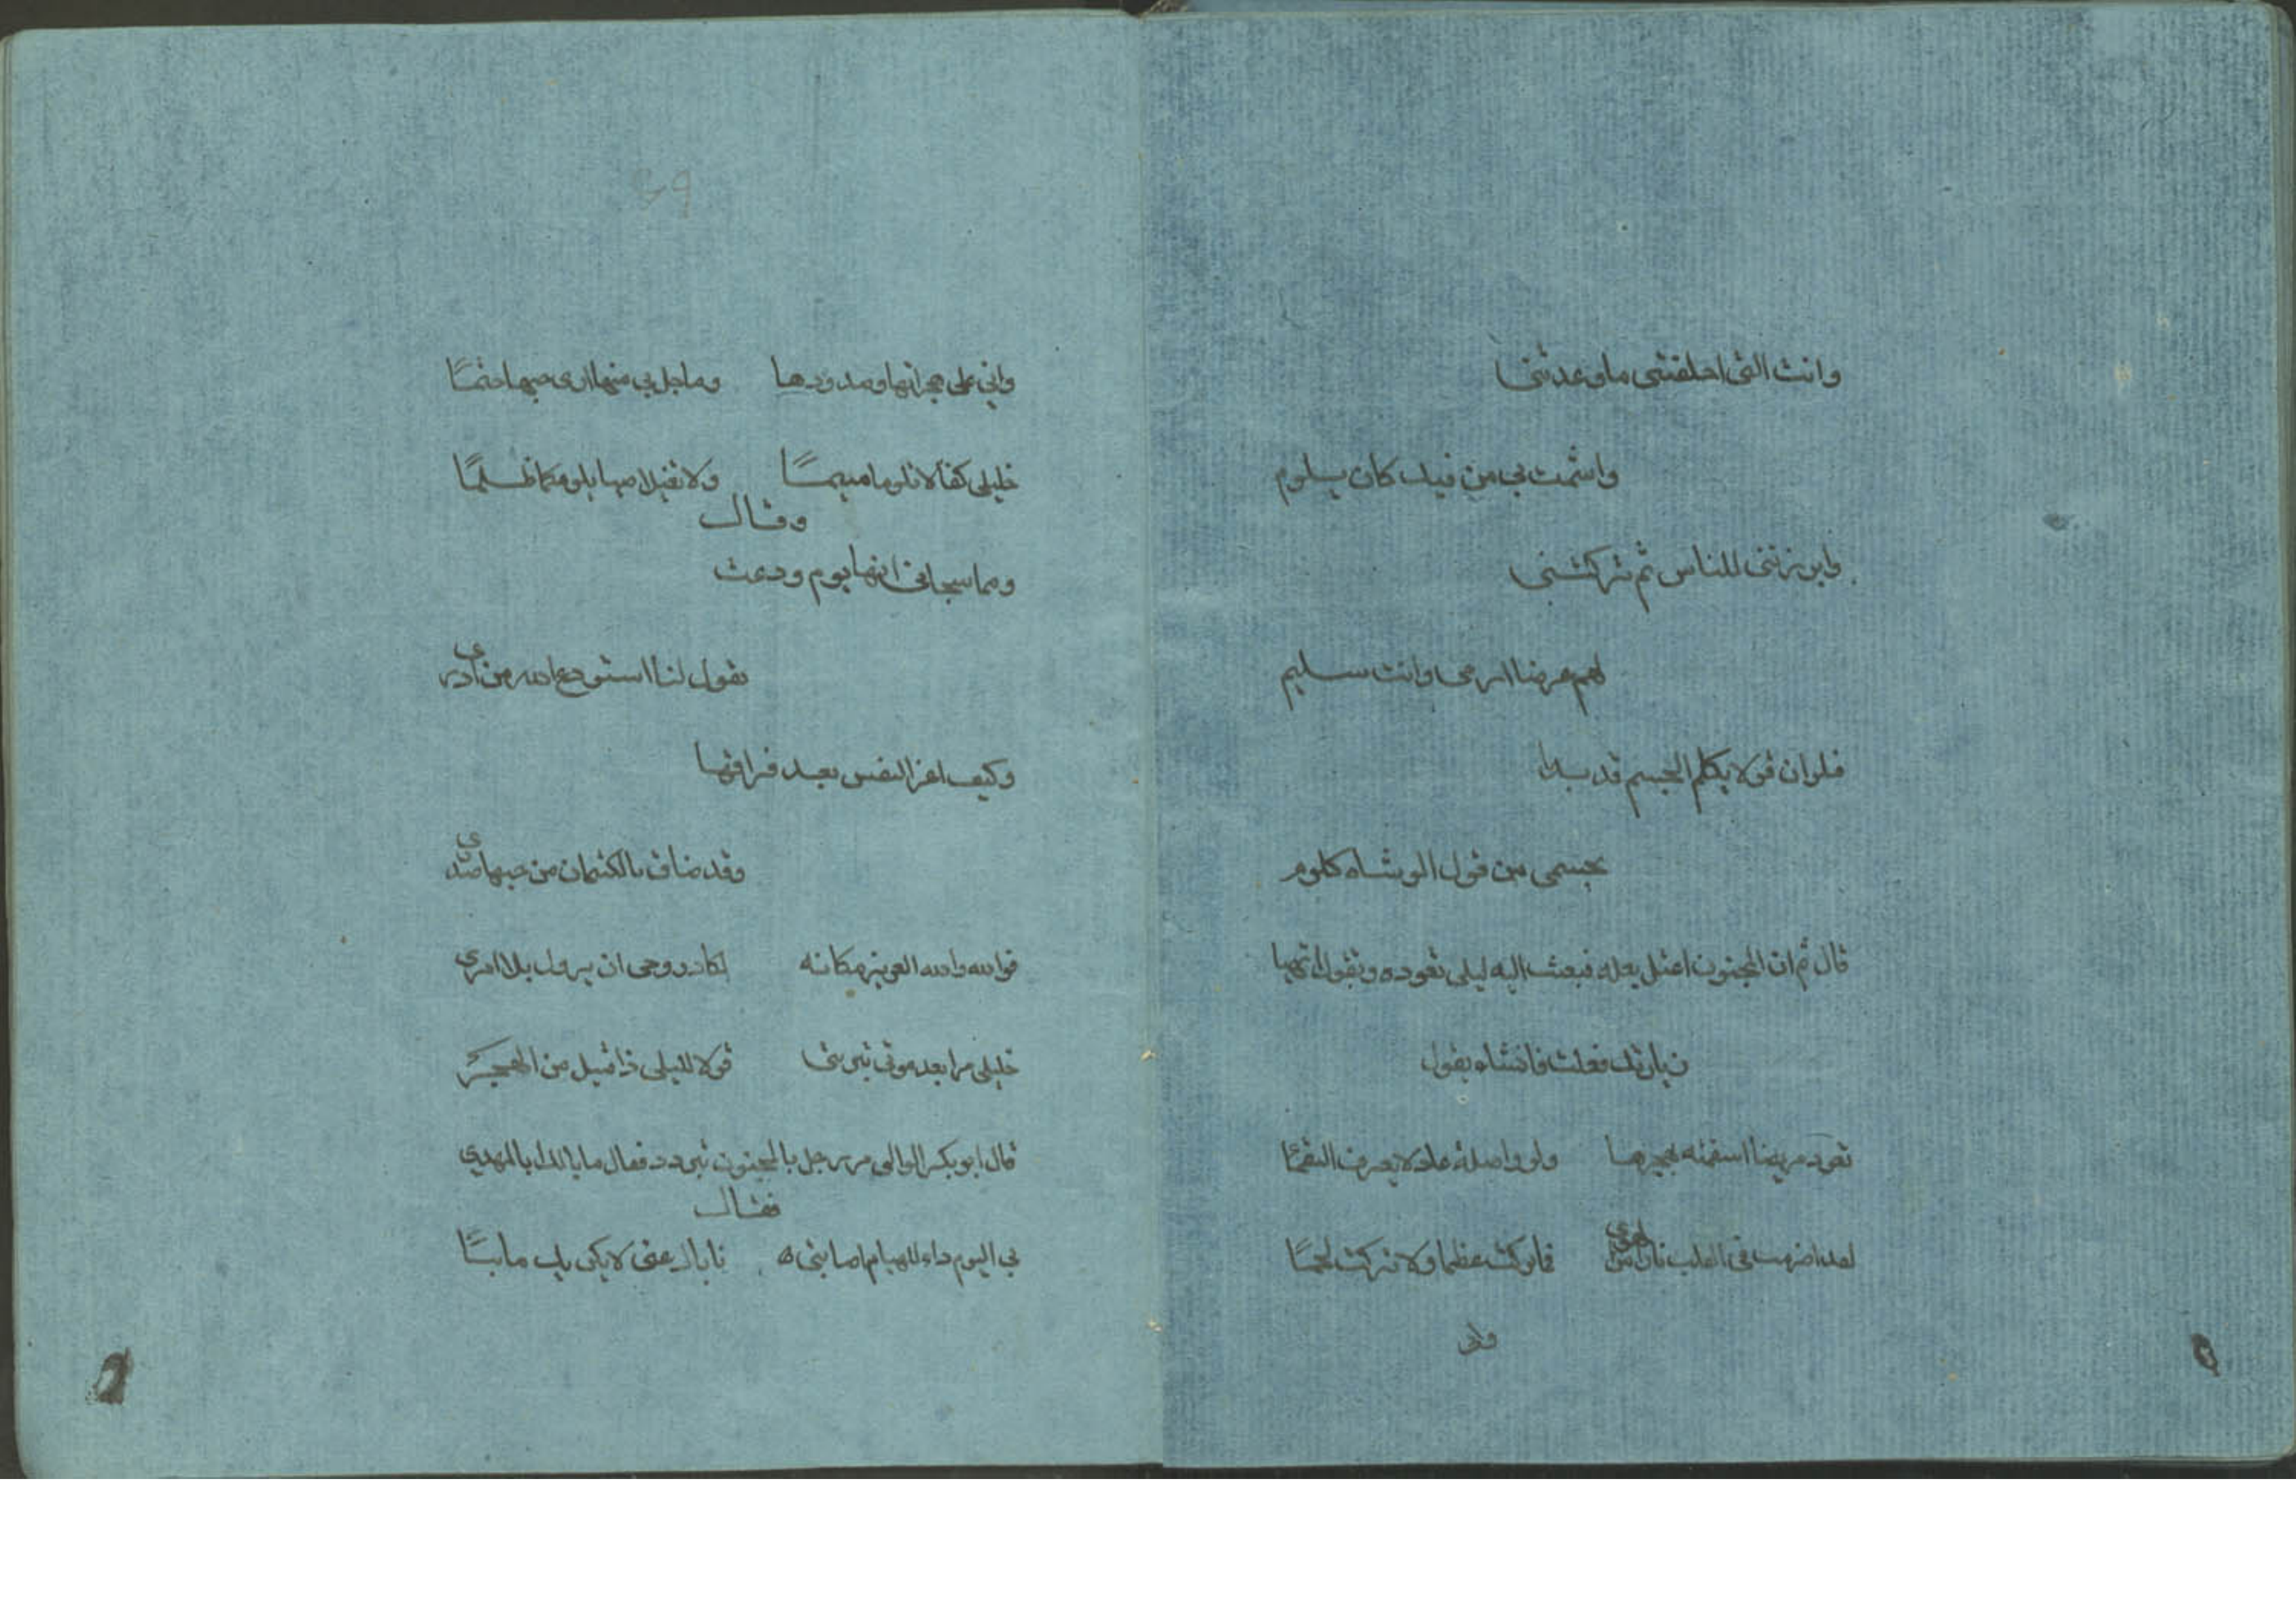 وانت التى اخلفتنى ما وعدتنى
واشمت بي من فيك كان يلوم
وابرزتنى للناس ثم تركتنى
لهم غرضا ارمى وانت سليم
فلو ان قولا يكلم الجسم قد بدا
بجسمى من قول الوشاه كلوم
قال ثم ان المجنون اعتل بعله فبعث اليه ليلى تعوده وتقول
زيارتك فعلت فانشاء يقول
تعود مريضا اسقمته بهجرها ولو واصلته عاد لا يعرف السقما
لقد اضرمت فى القلب نارا من الهوى فما تركت عظما ولا تركت لحما
وانى
واني على هجرانها وصدودها وما حل بي منها ارى حبها حتمًا
خليلى كفا لا تلوما متيمًا ولا تقتلا صبا بلومكما ظلمًا
وقال
ومما شجانى انها يوم ودعت
تقول لنا استودع الله من ادرى
وكيف اعز النفس بعد فراقها
وقد ضاق بالكتمان من حبها صدى
فوالله والله العزيز مكانه لكاد روحى ان يزول بلا امرى
خليلى مرا بعد موتى بتربتى قولا لليلى ذا قتيل من الهجر
قال ابو بكر الوالى مر رجل بالمجنون
فقال
بي اليوم داء للهيام اصابنى عنى لا يكن بك ما بيًا
49